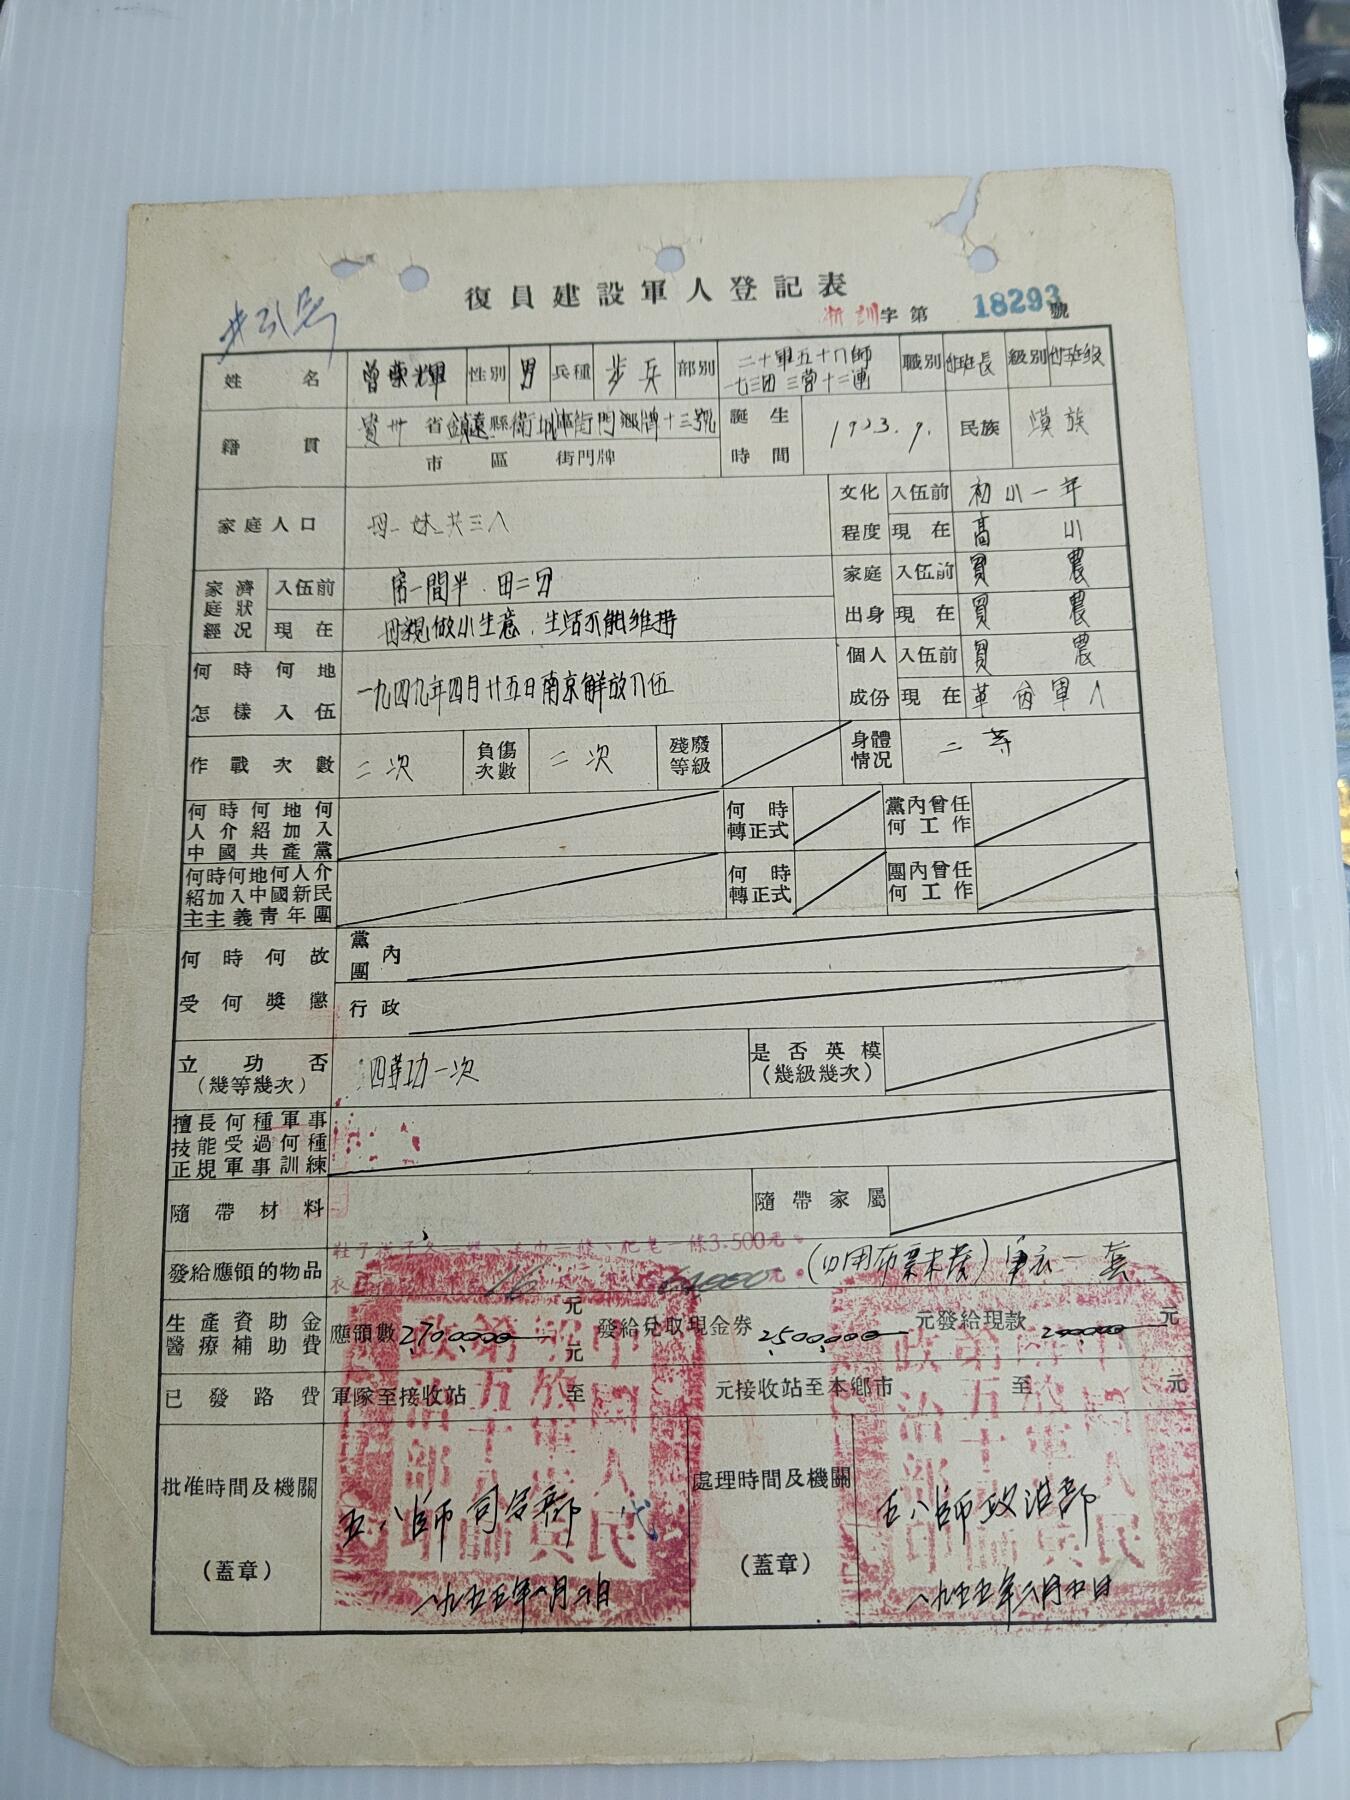 復員建設軍人登記表
浙訓字第 18293 號
姓名 曾榮輝 性別 男 兵種 步兵 部別 二十軍五十八師 一七三团三营十二連 職別 付班長 級別 付班级
籍貫 貴州省鎮遠縣衛城區街門鄉牌十三號
市 區 街門牌
誕生時間 1923.9. 民族 漢族
家庭人口 母一妹一共三人
文化程度 入伍前 初小一年
現在 高小
家庭經濟狀况 入伍前 房一間半.田二
現在 母親做小生意.生活不能維持
家庭出身 入伍前 貧農
現在 貧農
何時何地怎樣入伍 一九四九年四月廿五日南京解放入伍
個人成份 入伍前 貧農
現在 革命軍人
作戰次數 二次 負傷次數 二次 殘廢等級 身體情况 二等
何時何地何人介紹加入中國共產黨 何時轉正式 黨內曾任何工作
何時何地何人介紹加入中國新民主主義青年團 何時轉正式 團內曾任何工作
何時何故受何獎懲 黨團內
行政
立功否(幾等幾次) 四等功一次 是否英模(幾級幾次)
擅長何種軍事技能受過何種正規軍事訓練
隨帶材料 隨帶家屬
發給應領的物品 鞋子襪子各一條3.500元。
16 元。 軍衣一套
生產資助金醫療補助費 應領數 2700000 元 元 發給兌取現金券 2500000 元發給現款 200000 元
已發路費 軍隊至接收站 至 元接收站至本鄉市 至 元
批准時間及機關(蓋章) 五八師司令部 代
一九五五年一月二日
處理時間及機關(蓋章) 五八師政治部
一九五五年二月五日
中國人民解放軍步兵第五十八師政治部印
中國人民解放軍步兵第五十八師政治部印